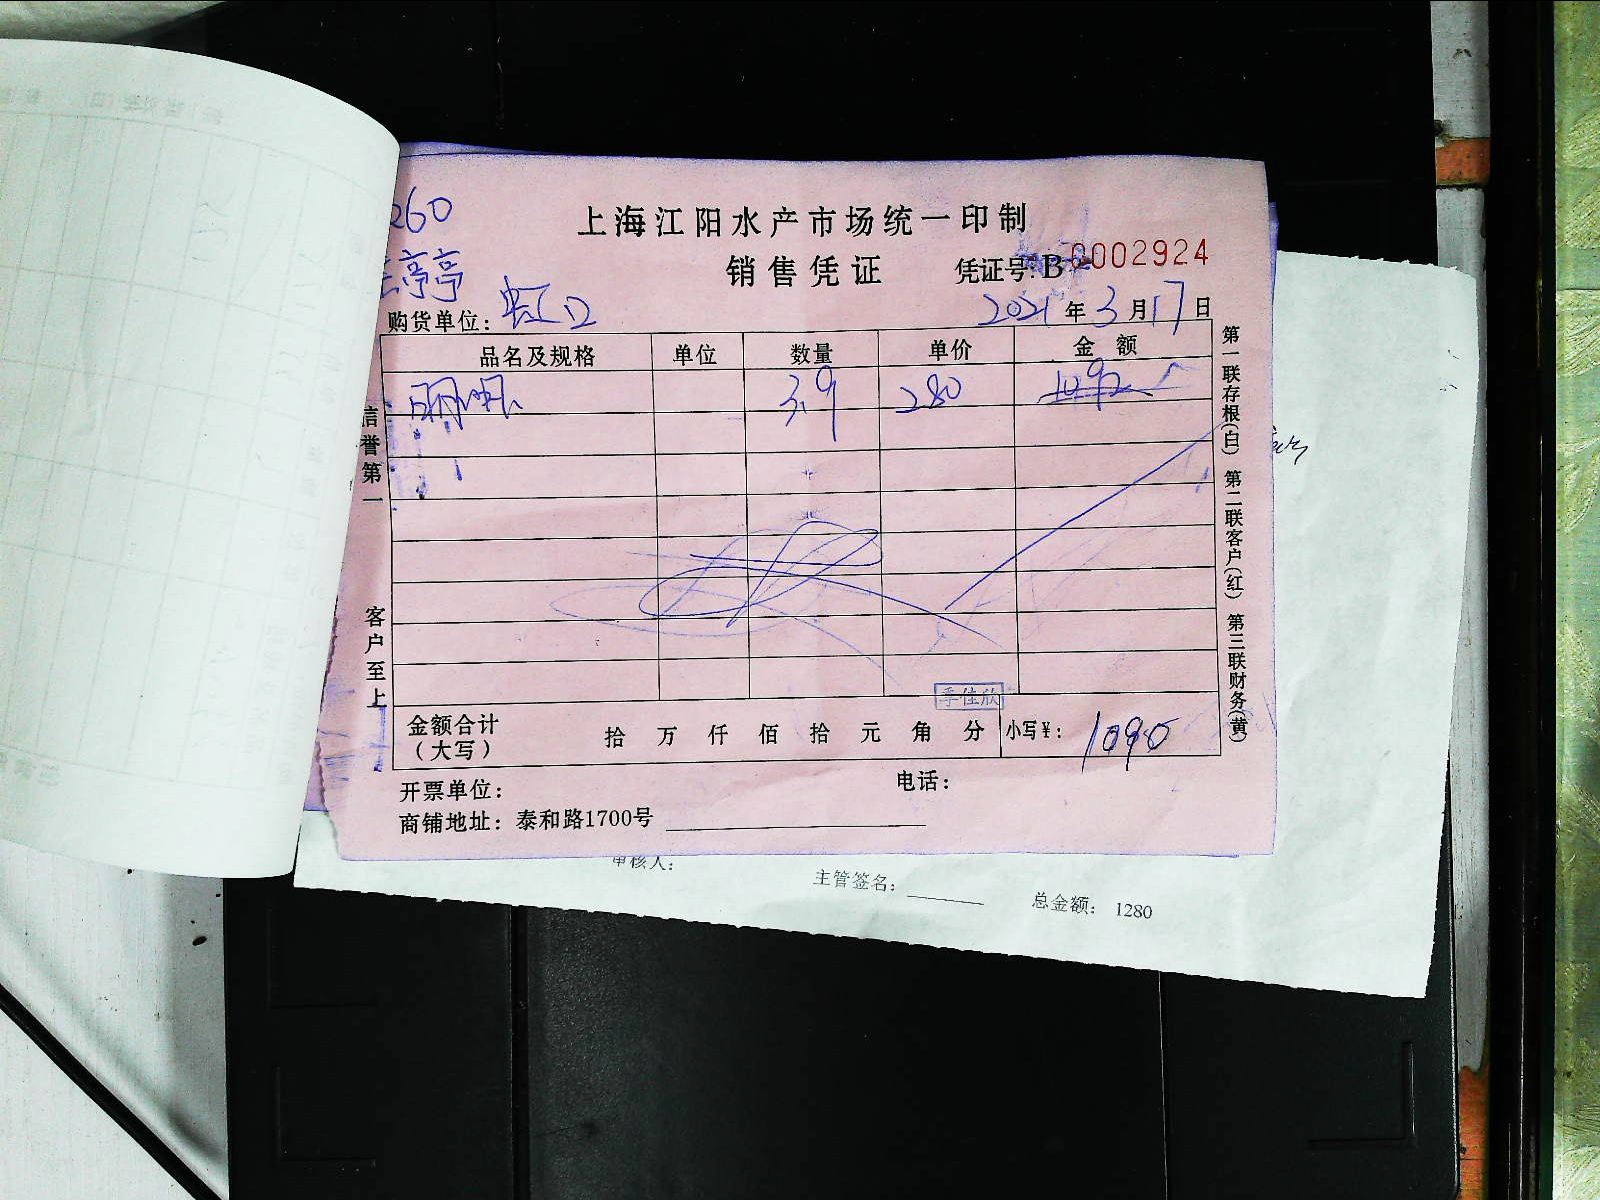 260
亭亭
上海江阳水产市场统一印制
销售凭证
凭证号: B 0002924
购货单位: 虹口
2021 年 3 月 17 日
品名及规格 单位 数量 单价 金额
3.9 280 1092
信誉第一
客户至上
第一联存根(白) 第二联客户(红) 第三联财务(黄)
李佳欣
金额合计(大写) 拾 万 仟 佰 拾 元 角 分 小写¥: 1090
开票单位: 电话:
商铺地址: 泰和路1700号
审核人:
主管签名:
总金额: 1280